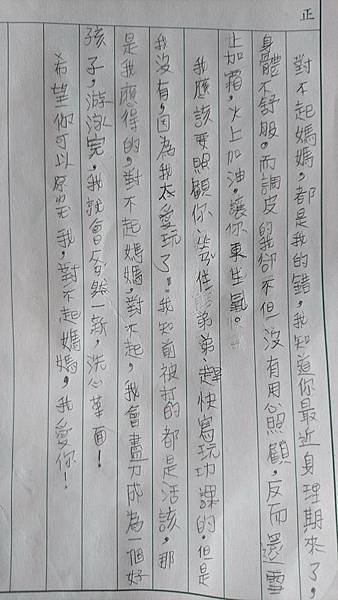 正
對不起媽媽,都是我的錯,我知道你最近身理期來了,
身體不舒服。而調皮的我卻不但沒有用心照顧,反而還雪
上加霜,火上加油,讓你更生氣。
我應該要照顧你、弟弟、趕快寫玩功課的。但是
我沒有,因為我太愛玩了。我知前被打的都是活該,那
是我應得的,對不起媽媽,對不起,我會盡力成為一個好
孩子,游泳完,我就會全然一新,洗心革面!
希望你可以原若我,對不起媽媽,我愛你!